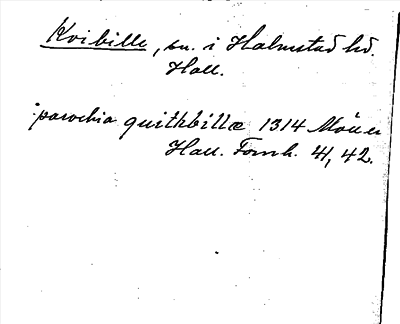 Kvibille, sn. i Halmstad hd.
Hall.
parochia quithbillæ 1314 Möller
Hall. Fornh. 41, 42.